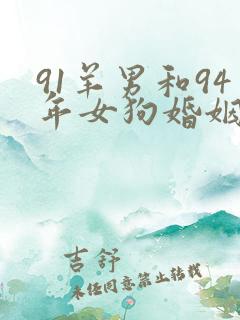 91羊男和94
年女狗婚姻
吉舒
未经同意禁止转载